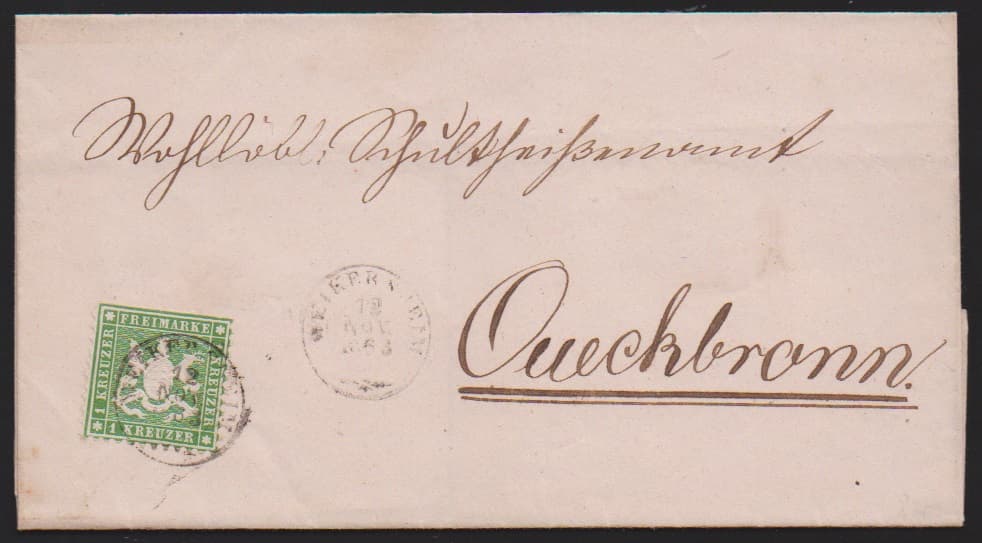 Wohllöbl: Schultheißenamt
Queckbronn.
WEIKERSHEIM
12
NOV
1863
FREIMARKE
1 KREUZER
KREUZER
1 KREUZER
12
NOV